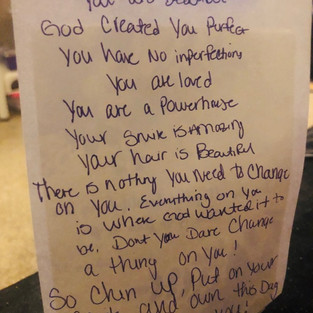 You are Beautiful
God Created You Perfect
You have No inperfections
You are loved
You are a Powerhouse
Your Smile is Amazing
Your hair is Beautiful
There is nothing You Need to Change
on You. Everything on You
is where God wanted it to
be. Dont You Dare Change
a thing on You!
So Chin up, Put on Your
and own this Day
You!